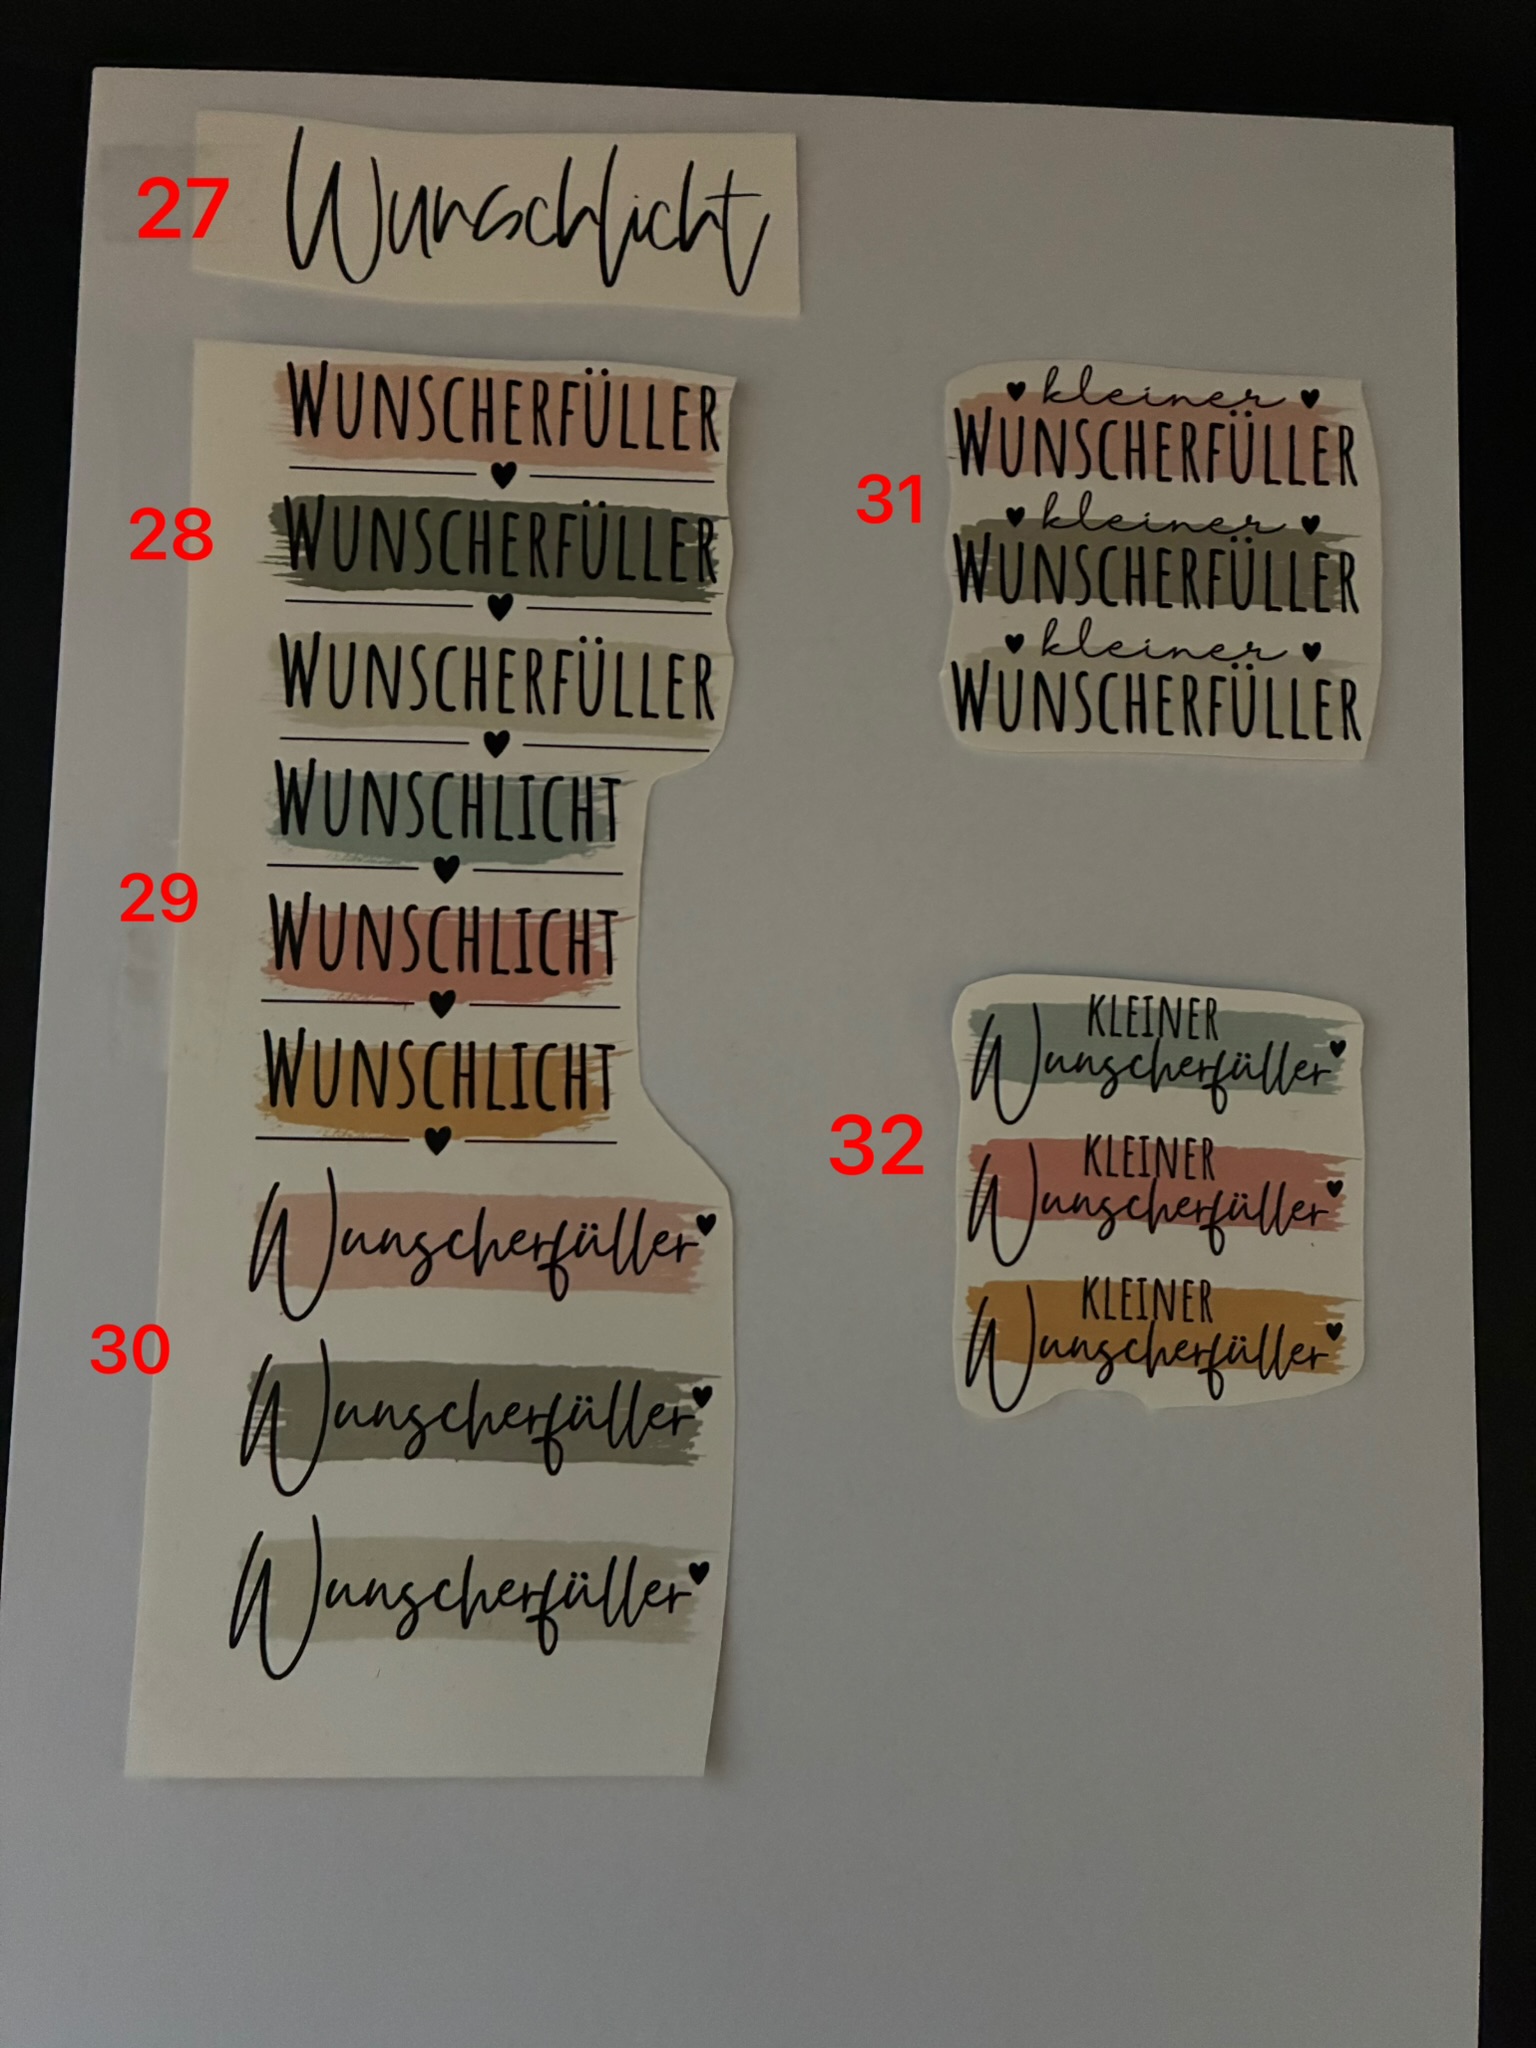 27 Wunschlicht
WUNSCHERFÜLLER
28 WUNSCHERFÜLLER
WUNSCHERFÜLLER
WUNSCHLICHT
29 WUNSCHLICHT
WUNSCHLICHT
Wunscherfüller
30 Wunscherfüller
Wunscherfüller
kleiner
WUNSCHERFÜLLER
31 kleiner
WUNSCHERFÜLLER
kleiner
WUNSCHERFÜLLER
KLEINER
Wunscherfüller
32 KLEINER
Wunscherfüller
KLEINER
Wunscherfüller